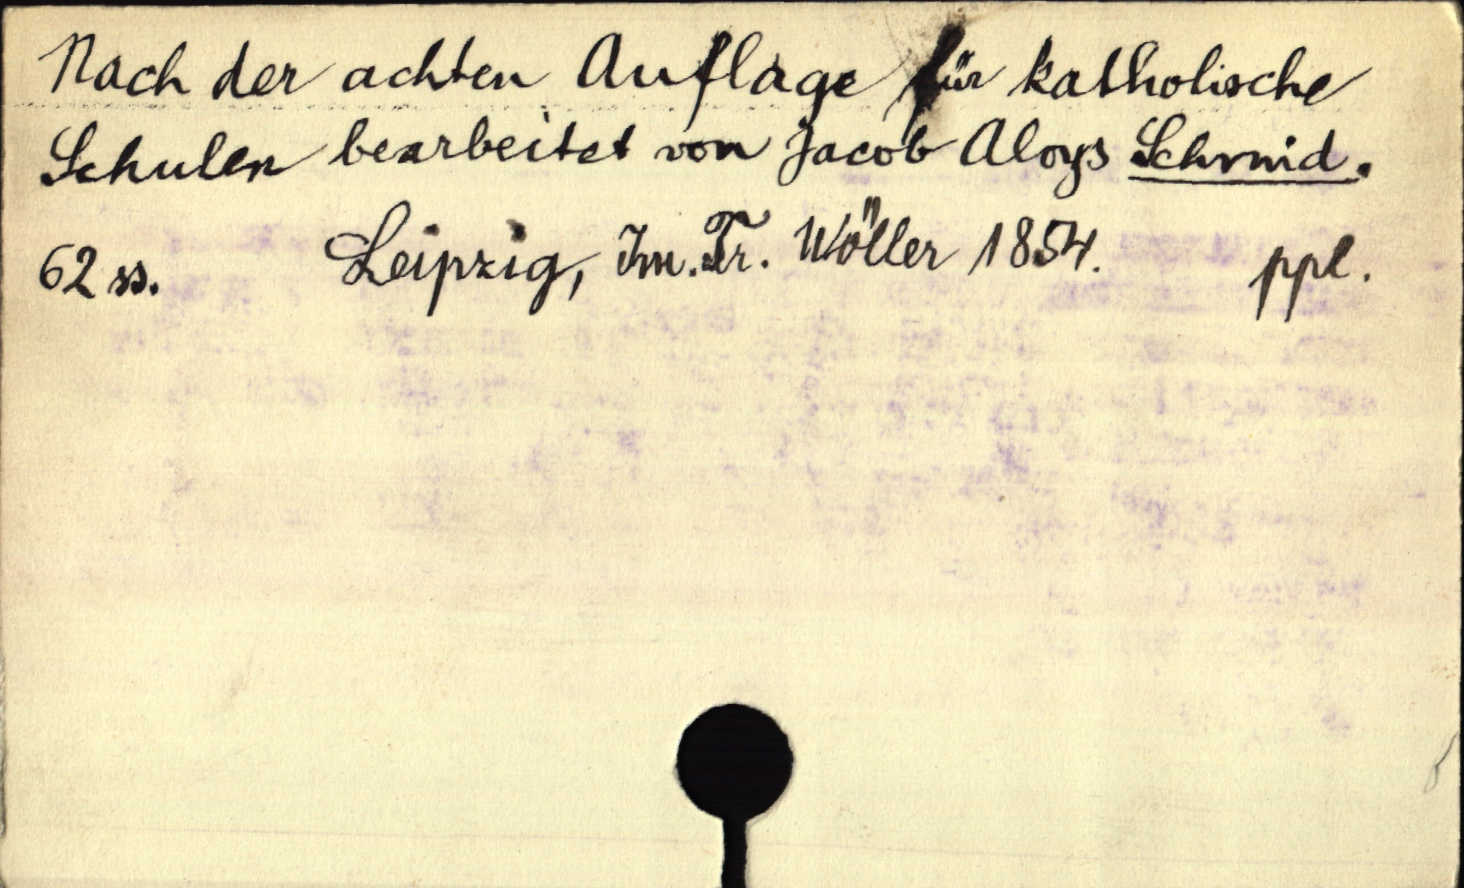 Nach der achten Auflage für katholische
Schulen bearbeitet von Jacob Aloys Schmid.
62 ss. Leipzig, Im. Tr. Wöller 1854. ppl.